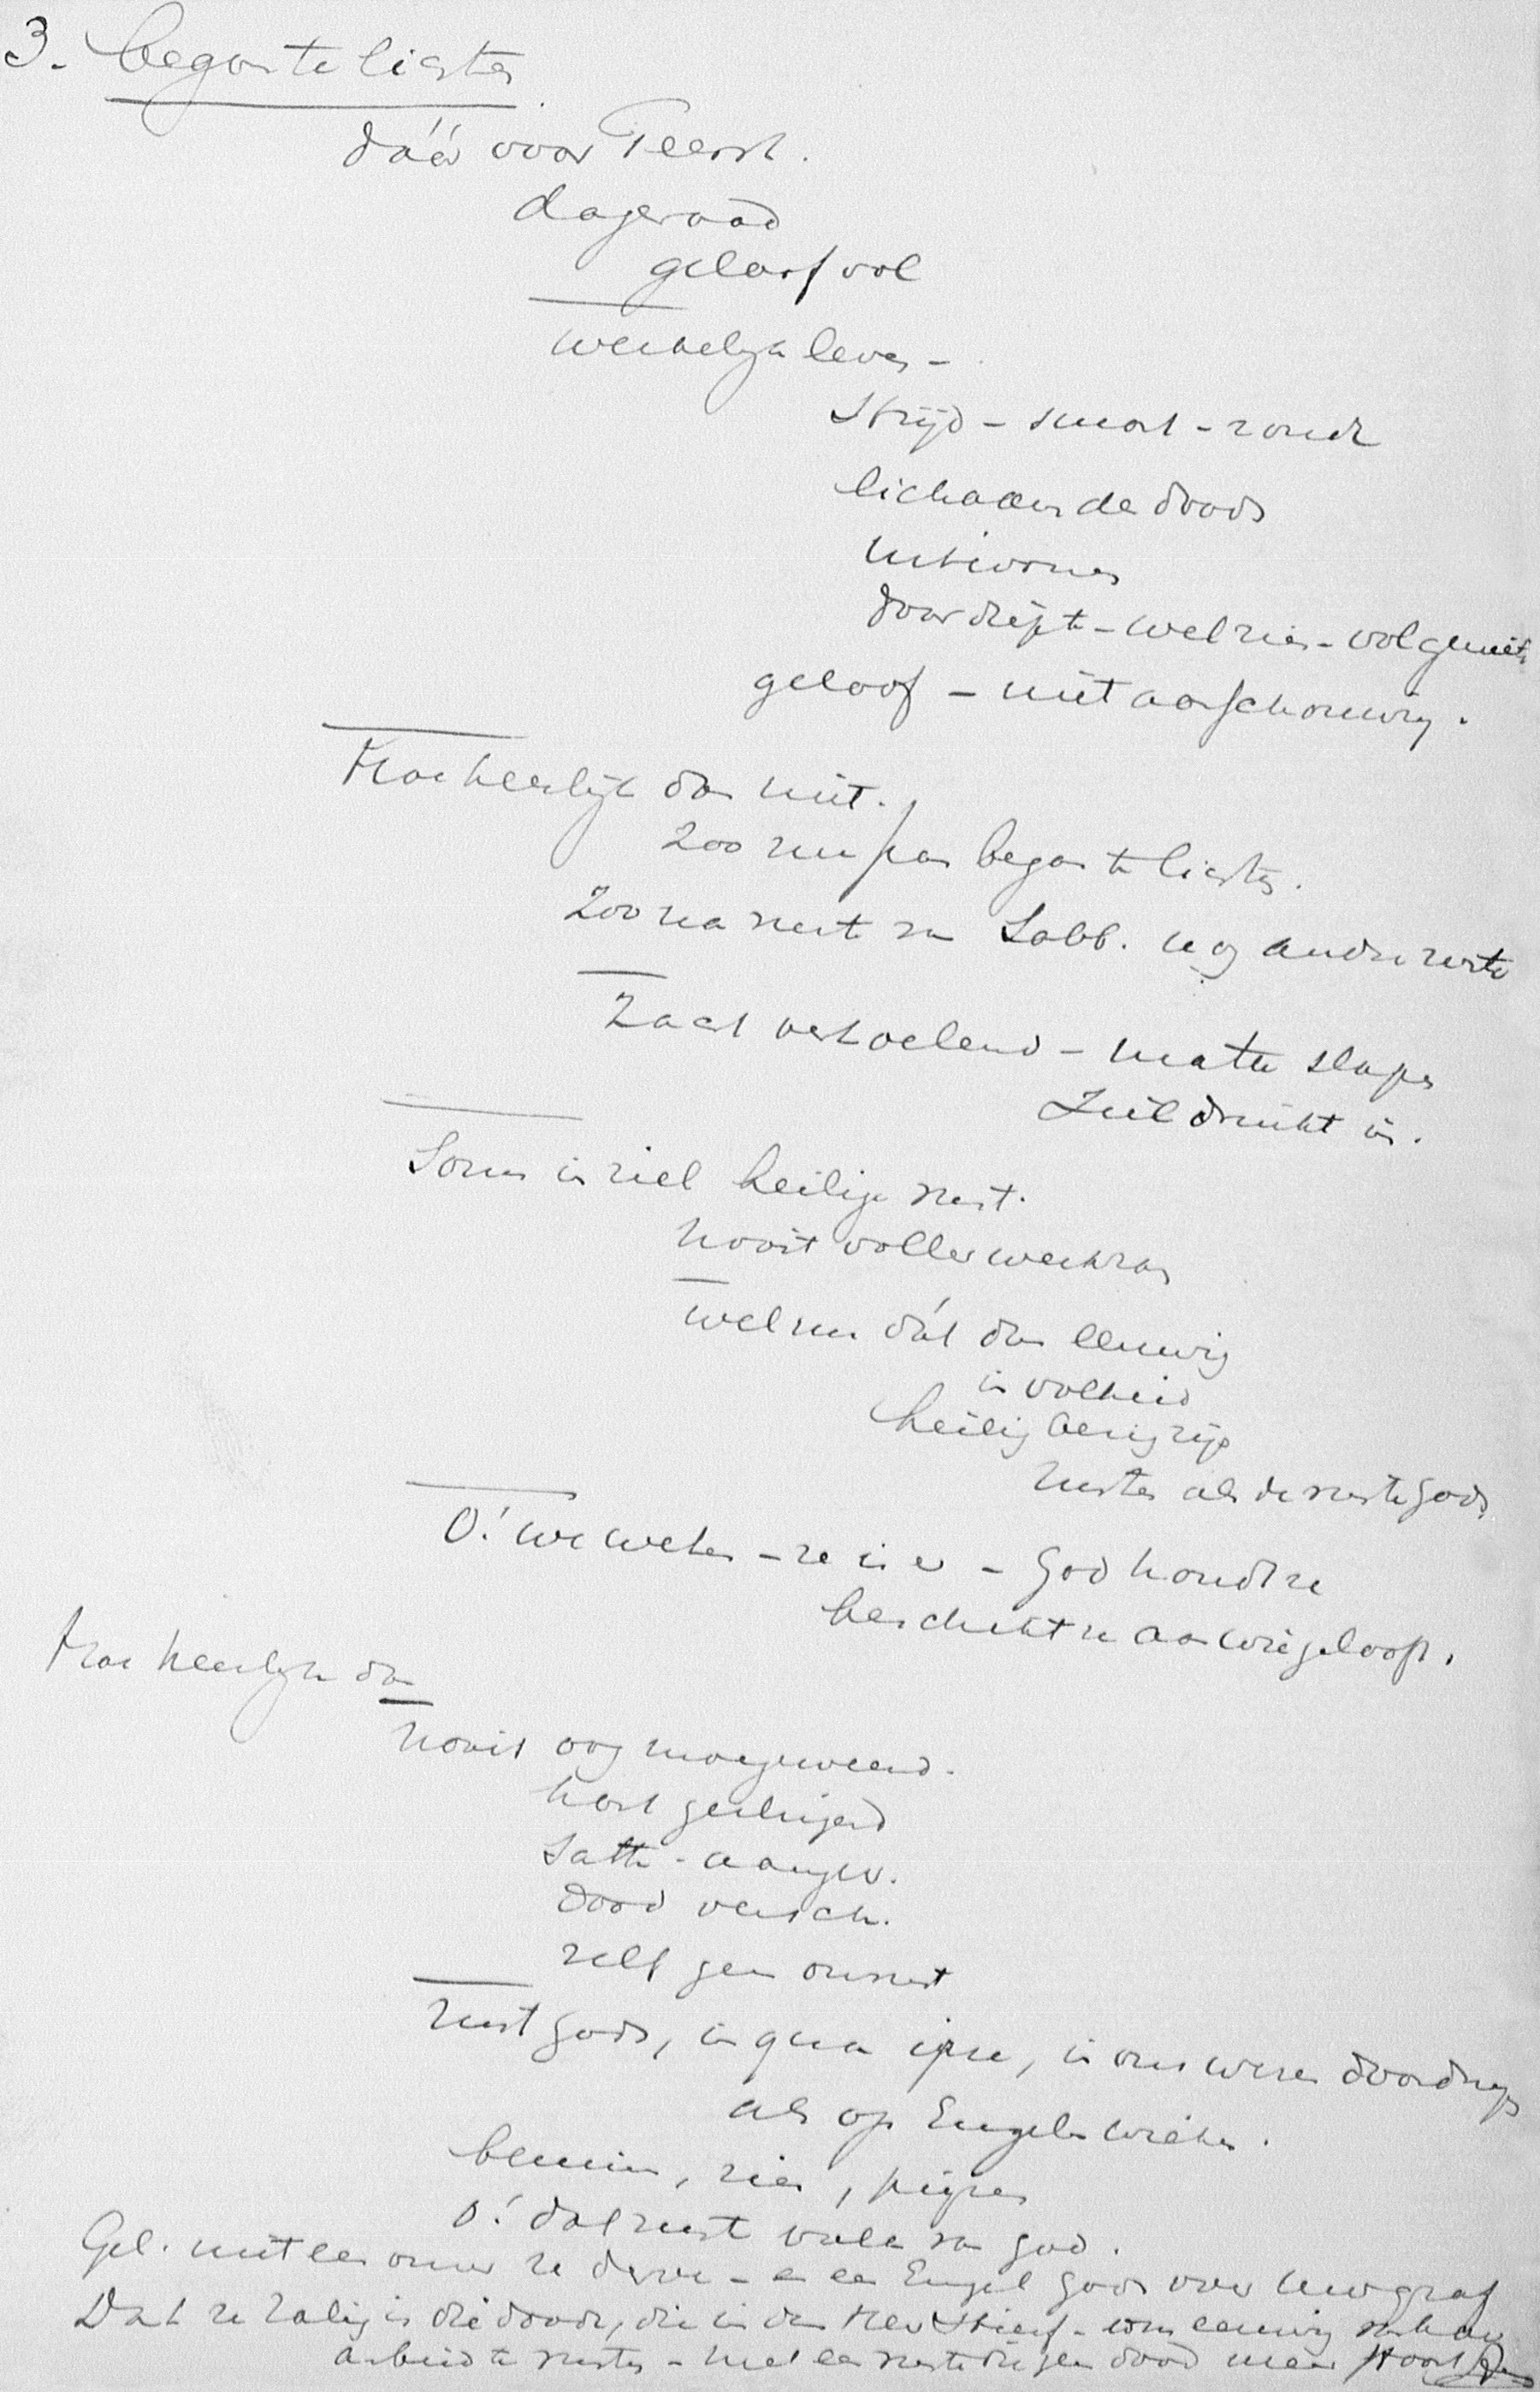 3. begon te lichten
dáár voor 't eerst.
dageraad
geloof vol
werkelijk leven -
Strijd - smart - zonde
lichaam des doods
door diepte - wel zien - vol geniet
geloof - niet aanschouwing.
Hoe heerlijk dan niet.
Zoo nu pas began te lichten.
Zoo na rust van Sabb. nog andere rust
Zacht verkoelend - matte slapen
Ziel drinkt in.
Soms in ziel heilige rust.
nooit voller werkzaam
welnu dát dan eeuwig
in volheid
heilig bezig zijn
rusten als de ruste Gods
O! we weten - ze is er - God houdt ze
beschikt ze aan wie gelooft.
Hoe heerlijk dan
nooit oog moegeweend.
hart gehijgend
Satan - aangev.
dood versch.
zelf geen onrust
rust Gods, in qua ipse, in ons wezen doordringe
als op Engelen wieken.
beminnen, zien, prijzen
O! dat rust vule van God.
Gel. niet een onzer ze derve - en een Engel Gods over uw graf
Dat ze zalig is die doode, die in den Heer stierf - om eeuwig van haar
arbeid te rusten - met een ruste die geen dood meer stoort Amen